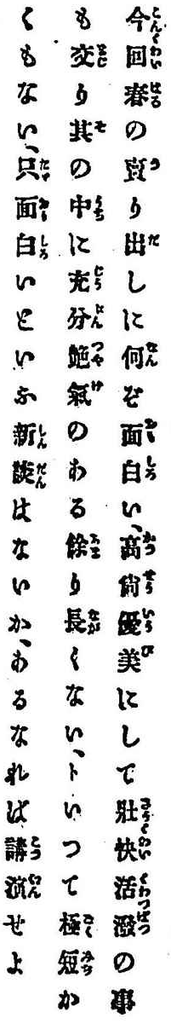 今回春の賣り出しに何ぞ面白い、高尙優美にして壯快活潑の事
も交り其の中に充分艶氣のある餘り長くない、トいつて極短か
くもない、只面白いといふ新談はないか、あるなれば講演せよ